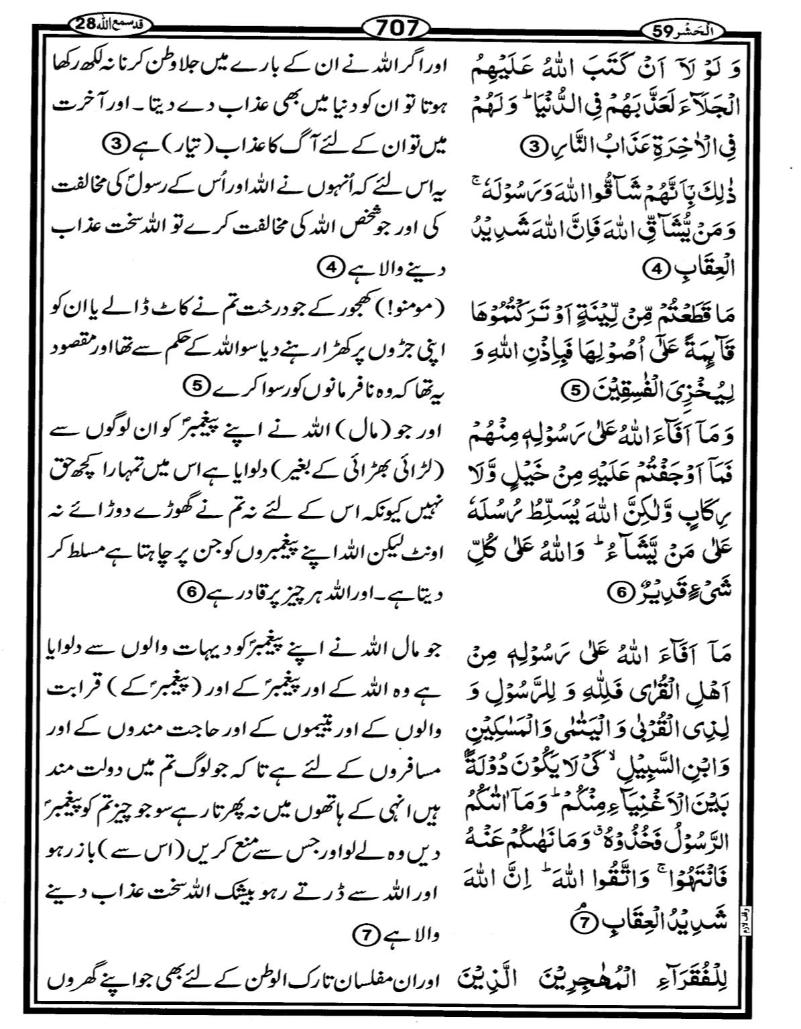 قد سمع اللہ 28
707
الْحَشْر 59
وَ لَوْ لَاۤ اَنْ كَتَبَ اللّٰهُ عَلَیْهِمُ
الْجَلَآءَ لَعَذَّبَهُمْ فِی الدُّنْیَا ؕ وَ لَهُمْ
فِی الْاٰخِرَةِ عَذَابُ النَّارِ ③
ذٰلِكَ بِاَنَّهُمْ شَآقُّوا اللّٰهَ وَ رَسُوْلَهٗ ۚ
وَ مَنْ یُّشَآقِّ اللّٰهَ فَاِنَّ اللّٰهَ شَدِیْدُ
الْعِقَابِ ④
مَا قَطَعْتُمْ مِّنْ لِّیْنَةٍ اَوْ تَرَكْتُمُوْهَا
قَآىِٕمَةً عَلٰۤی اُصُوْلِهَا فَبِاِذْنِ اللّٰهِ وَ
لِیُخْزِیَ الْفٰسِقِیْنَ ⑤
وَ مَاۤ اَفَآءَ اللّٰهُ عَلٰی رَسُوْلِهٖ مِنْهُمْ
فَمَاۤ اَوْجَفْتُمْ عَلَیْهِ مِنْ خَیْلٍ وَّ لَا
رِكَابٍ وَّ لٰكِنَّ اللّٰهَ یُسَلِّطُ رُسُلَهٗ
عَلٰی مَنْ یَّشَآءُ ؕ وَ اللّٰهُ عَلٰی كُلِّ
شَیْءٍ قَدِیْرٌ ⑥
مَاۤ اَفَآءَ اللّٰهُ عَلٰی رَسُوْلِهٖ مِنْ
اَهْلِ الْقُرٰی فَلِلّٰهِ وَ لِلرَّسُوْلِ وَ
لِذِی الْقُرْبٰی وَ الْیَتٰمٰی وَ الْمَسٰكِیْنِ
وَ ابْنِ السَّبِیْلِ ۙ كَیْ لَا یَكُوْنَ دُوْلَةًۢ
بَیْنَ الْاَغْنِیَآءِ مِنْكُمْ ؕ وَ مَاۤ اٰتٰىكُمُ
الرَّسُوْلُ فَخُذُوْهُ ۗ وَ مَا نَهٰىكُمْ عَنْهُ
فَانْتَهُوْا ۚ وَ اتَّقُوا اللّٰهَ ؕ اِنَّ اللّٰهَ
شَدِیْدُ الْعِقَابِ ⑦ۘ
وقف لازم
لِلْفُقَرَآءِ الْمُهٰجِرِیْنَ الَّذِیْنَ
اور اگر اللہ نے ان کے بارے میں جلا وطن کرنا نہ لکھ رکھا
ہوتا تو ان کو دنیا میں بھی عذاب دے دیتا ۔ اور آخرت
میں تو ان کے لئے آگ کا عذاب (تیار) ہے ③
یہ اس لئے کہ اُنہوں نے اللہ اور اُس کے رسولؐ کی مخالفت
کی اور جو شخص اللہ کی مخالفت کرے تو اللہ سخت عذاب
دینے والا ہے ④
(مومنو!) کھجور کے جو درخت تم نے کاٹ ڈالے یا ان کو
اپنی جڑوں پر کھڑا رہنے دیا سو اللہ کے حکم سے تھا اور مقصود
یہ تھا کہ وہ نافرمانوں کو رسوا کرے ⑤
اور جو (مال) اللہ نے اپنے پیغمبرؐ کو ان لوگوں سے
(لڑائی بھڑائی کے بغیر) دلوایا ہے اس میں تمہارا کچھ حق
نہیں کیونکہ اس کے لئے نہ تم نے گھوڑے دوڑائے نہ
اونٹ لیکن اللہ اپنے پیغمبروں کو جن پر چاہتا ہے مسلط کر
دیتا ہے۔ اور اللہ ہر چیز پر قادر ہے ⑥
جو مال اللہ نے اپنے پیغمبرؐ کو دیہات والوں سے دلوایا
ہے وہ اللہ کے اور پیغمبرؐ کے اور (پیغمبرؐ کے) قرابت
والوں کے اور یتیموں کے اور حاجت مندوں کے اور
مسافروں کے لئے ہے تا کہ جو لوگ تم میں دولت مند
ہیں انہی کے ہاتھوں میں نہ پھرتا رہے سو جو چیز تم کو پیغمبرؐ
دیں وہ لے لو اور جس سے منع کریں (اس سے) باز رہو
اور اللہ سے ڈرتے رہو بیشک اللہ سخت عذاب دینے
والا ہے ⑦
اور ان مفلسان تارک الوطن کے لئے بھی جو اپنے گھروں